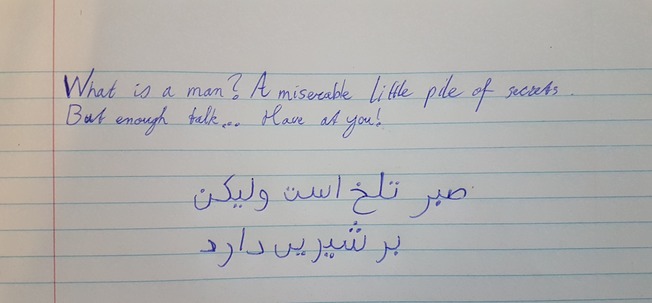 What is a man? A miserable little pile of secrets.
But enough talk... Have at you!
صبر تلخ است ولیکن
بر شیرین دارد